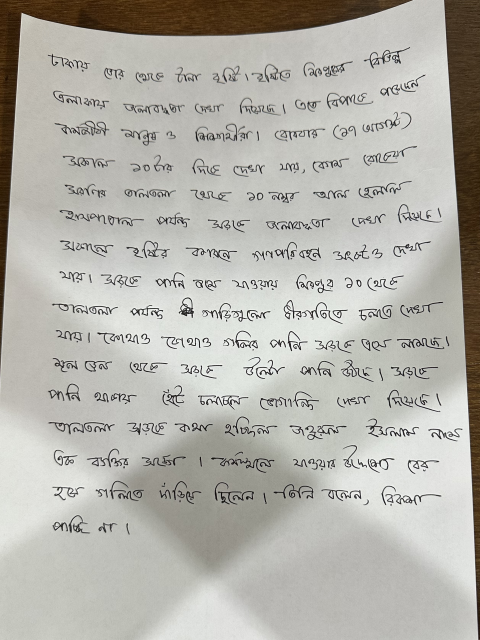 ঢাকায় ভোর থেকে টানা বৃষ্টি। বৃষ্টিতে মিরপুরের বিভিন্ন
এলাকায় জলাবদ্ধতা দেখা দিয়েছে। এতে বিপাকে পড়েছেন
কর্মজীবী মানুষ ও শিক্ষার্থীরা। রোববার (১৭ আগস্ট)
সকাল ১০টার দিকে দেখা যায়, বেগম রোকেয়া
সরণির তালতলা থেকে ১০ নম্বর আল হেলাল
হাসপাতাল পর্যন্ত সড়কে জলাবদ্ধতা দেখা দিয়েছে।
সকালে বৃষ্টির কারণে গণপরিবহন সংকটও দেখা
যায়। সড়কে পানি জমে যাওয়ায় মিরপুর ১০ থেকে
তালতলা পর্যন্ত গাড়িগুলো ধীরগতিতে চলতে দেখা
যায়। কোথাও কোথাও গলির পানি সড়কে এসে নামছে।
মূল ড্রেন থেকে সড়কে উল্টো পানি উঠছে। সড়কে
পানি থাকায় হেঁটে চলাচলে ভোগান্তি দেখা দিয়েছে।
তালতলা সড়কে কথা হচ্ছিল জহুরুল ইসলাম নামে
এক ব্যক্তির সঙ্গে। কর্মস্থলে যাওয়ার উদ্দেশ্যে বের
হয়ে গলিতে দাঁড়িয়ে ছিলেন। তিনি বলেন, রিকশা
পাচ্ছি না।